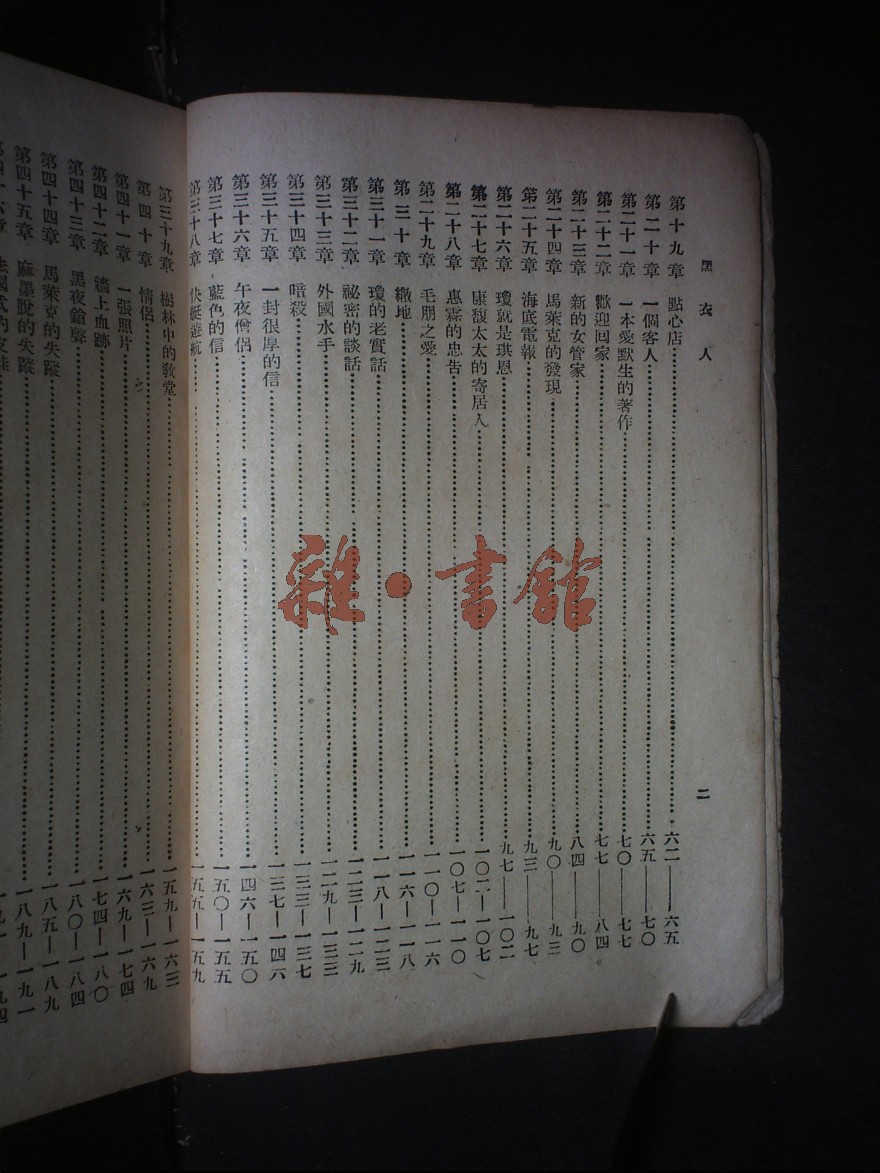 黑衣人
二
第十九章　點心店……六二——六五
第二十章　一個客人……六五——七〇
第二十一章　一本愛默生的著作……七〇——七七
第二十二章　歡迎回家……七七——八四
第二十三章　新的女管家……八四——九〇
第二十四章　馬萊克的發現……九〇——九三
第二十五章　海底電報……九三——九七
第二十六章　瓊就是琪恩……九七——一〇二
第二十七章　康馥太太的寄居人……一〇二—一〇七
第二十八章　惠霖的忠告……一〇七—一一〇
第二十九章　毛朋之愛……一一〇—一一六
第三十章　繳地……一一六—一一八
第三十一章　瓊的老實話……一一八—一二三
第三十二章　祕密的談話……一二三—一二九
第三十三章　外國水手……一二九—一三三
第三十四章　暗殺……一三三—一三七
第三十五章　一封很厚的信……一三七—一四六
第三十六章　午夜僧侶……一四六—一五〇
第三十七章　藍色的信……一五〇—一五五
第三十八章　快艇遊航……一五五—一五九
第三十九章　樹林中的教堂……一五九—一六三
第四十章　情侶……一六三—一六九
第四十一章　一張照片……一六九—一七四
第四十二章　牆上血跡……一七四—一八〇
第四十三章　黑夜鎗聲……一八〇—一八四
第四十四章　馬萊克的失蹤……一八五—一八九
第四十五章　麻墨脫的失蹤……一八九—一九一
雜·書館